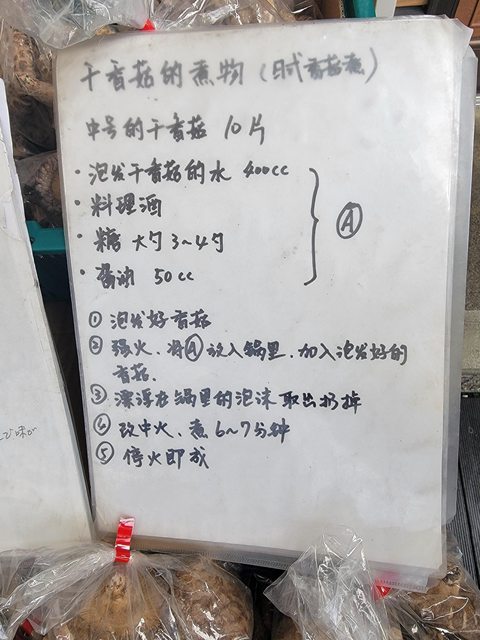 干香菇的煮物（日式香菇煮）
中号的干香菇 10片
・泡发干香菇的水 400cc
・料理酒
・糖 大勺3~4勺
・酱油 50cc
Ⓐ
① 泡发好香菇
② 强火、将Ⓐ放入锅里、加入泡发好的
香菇.
③ 漂浮在锅里的泡沫取出扔掉
④ 改中火、煮6~7分钟
⑤ 停火即成